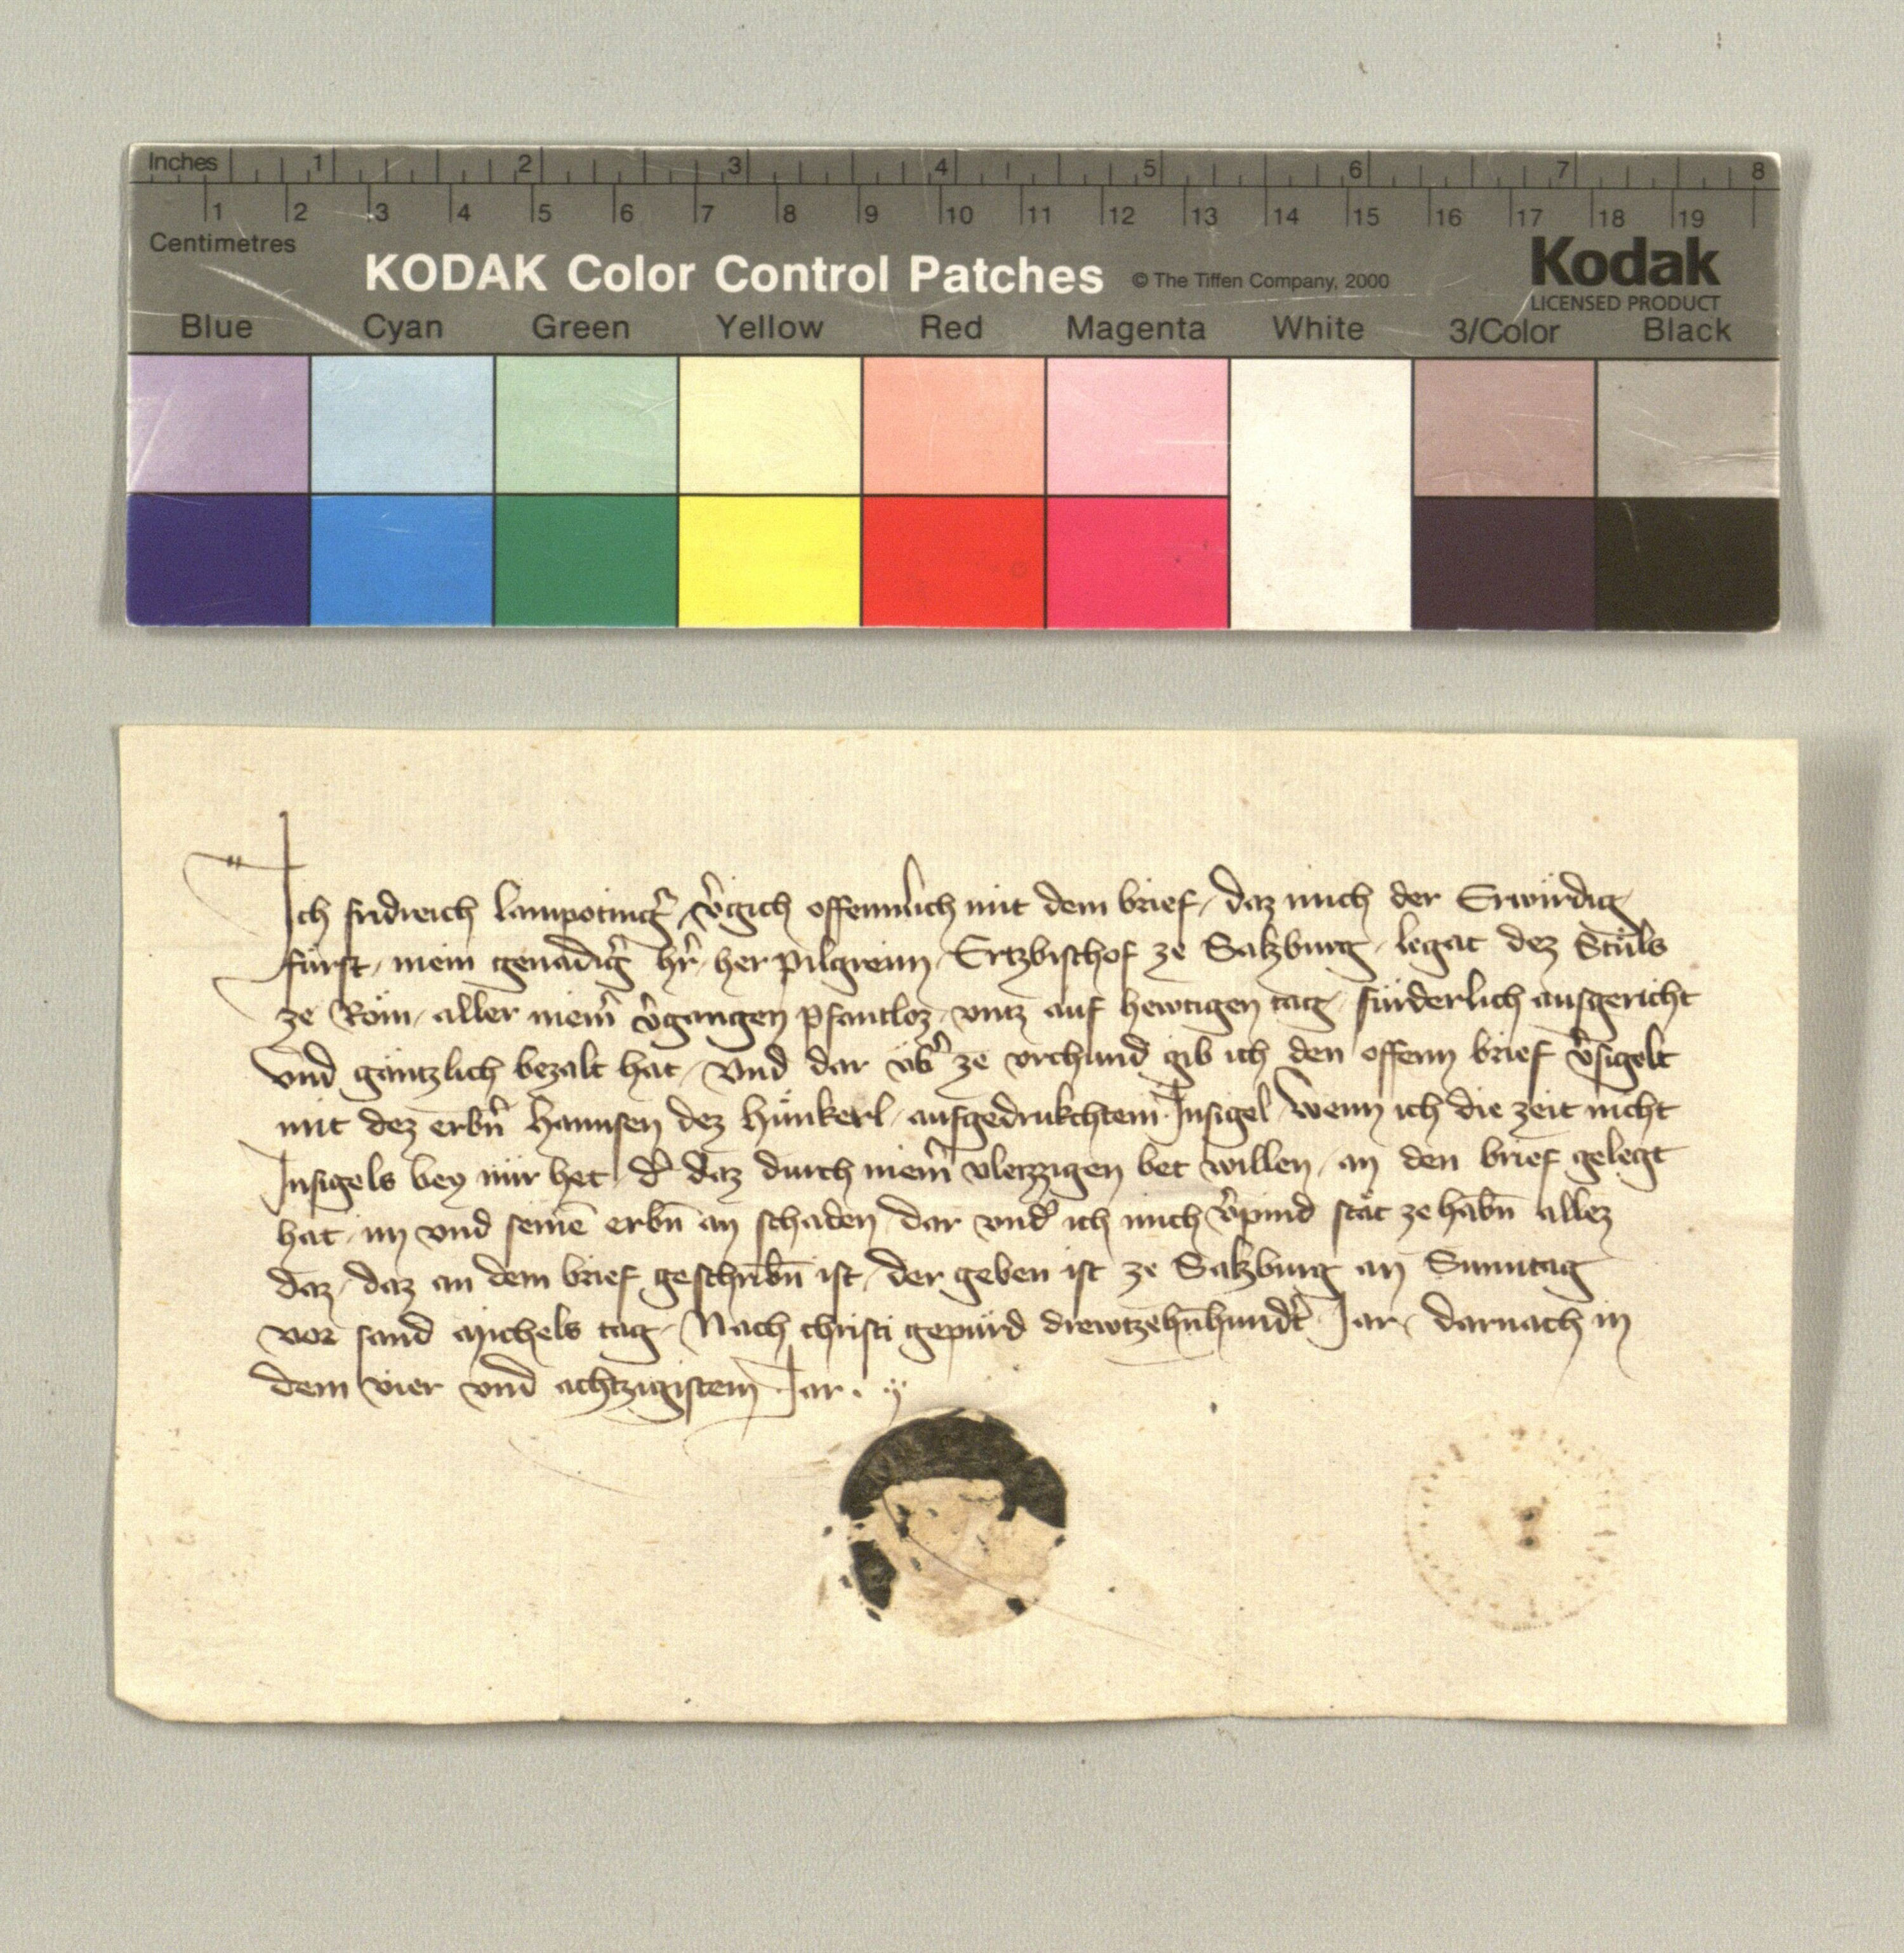 Inches 1 2 3 4 5 6 7 8
1 2 3 4 5 6 7 8 9 10 11 12 13 14 15 16 17 18 19
Centimetres
KODAK Color Control Patches © The Tiffen Company, 2000 Kodak
LICENSED PRODUCT
Blue Cyan Green Yellow Red Magenta White 3/Color Black
Ich fridreich lampoting̃ ṽgich offennlich mit dem brief / daz mich der Erwirdig
fürst / mein genadig̃ hr̃ / her pilgreim / Ertzbischof ze Salzburg / legat dez Stůls
ze Rom / aller meiñ ṽgangen pfantloz / vntz auf hewtigen tag / fürderlich ausgericht
vnd gäntzlich bezalt hat / Vnd dar üb̃ ze vrchund gib ich den offenn brief ṽsigelt
mit dez erbñ hannsen dez hünkerl / aufgedrukchtem Insigel / wenn ich die zeit nicht
Insigels bey mir het / d̃ daz durch meiñ vleizzigen bet willen / an den brief gelegt
hat / im vnd seinē erbn̄ an schaden / dar vnd̃ ich mich ṽpind stät ze habn̄ allez
daz / daz an dem brief geschribn̄ ist / der geben ist ze Salzburg an Sunntag
vor sand Michels tag / Nach christi gepürd drewtzehn̄hundt̃ Iar / darnach in
dem vier vnd achtzigistem Iar .